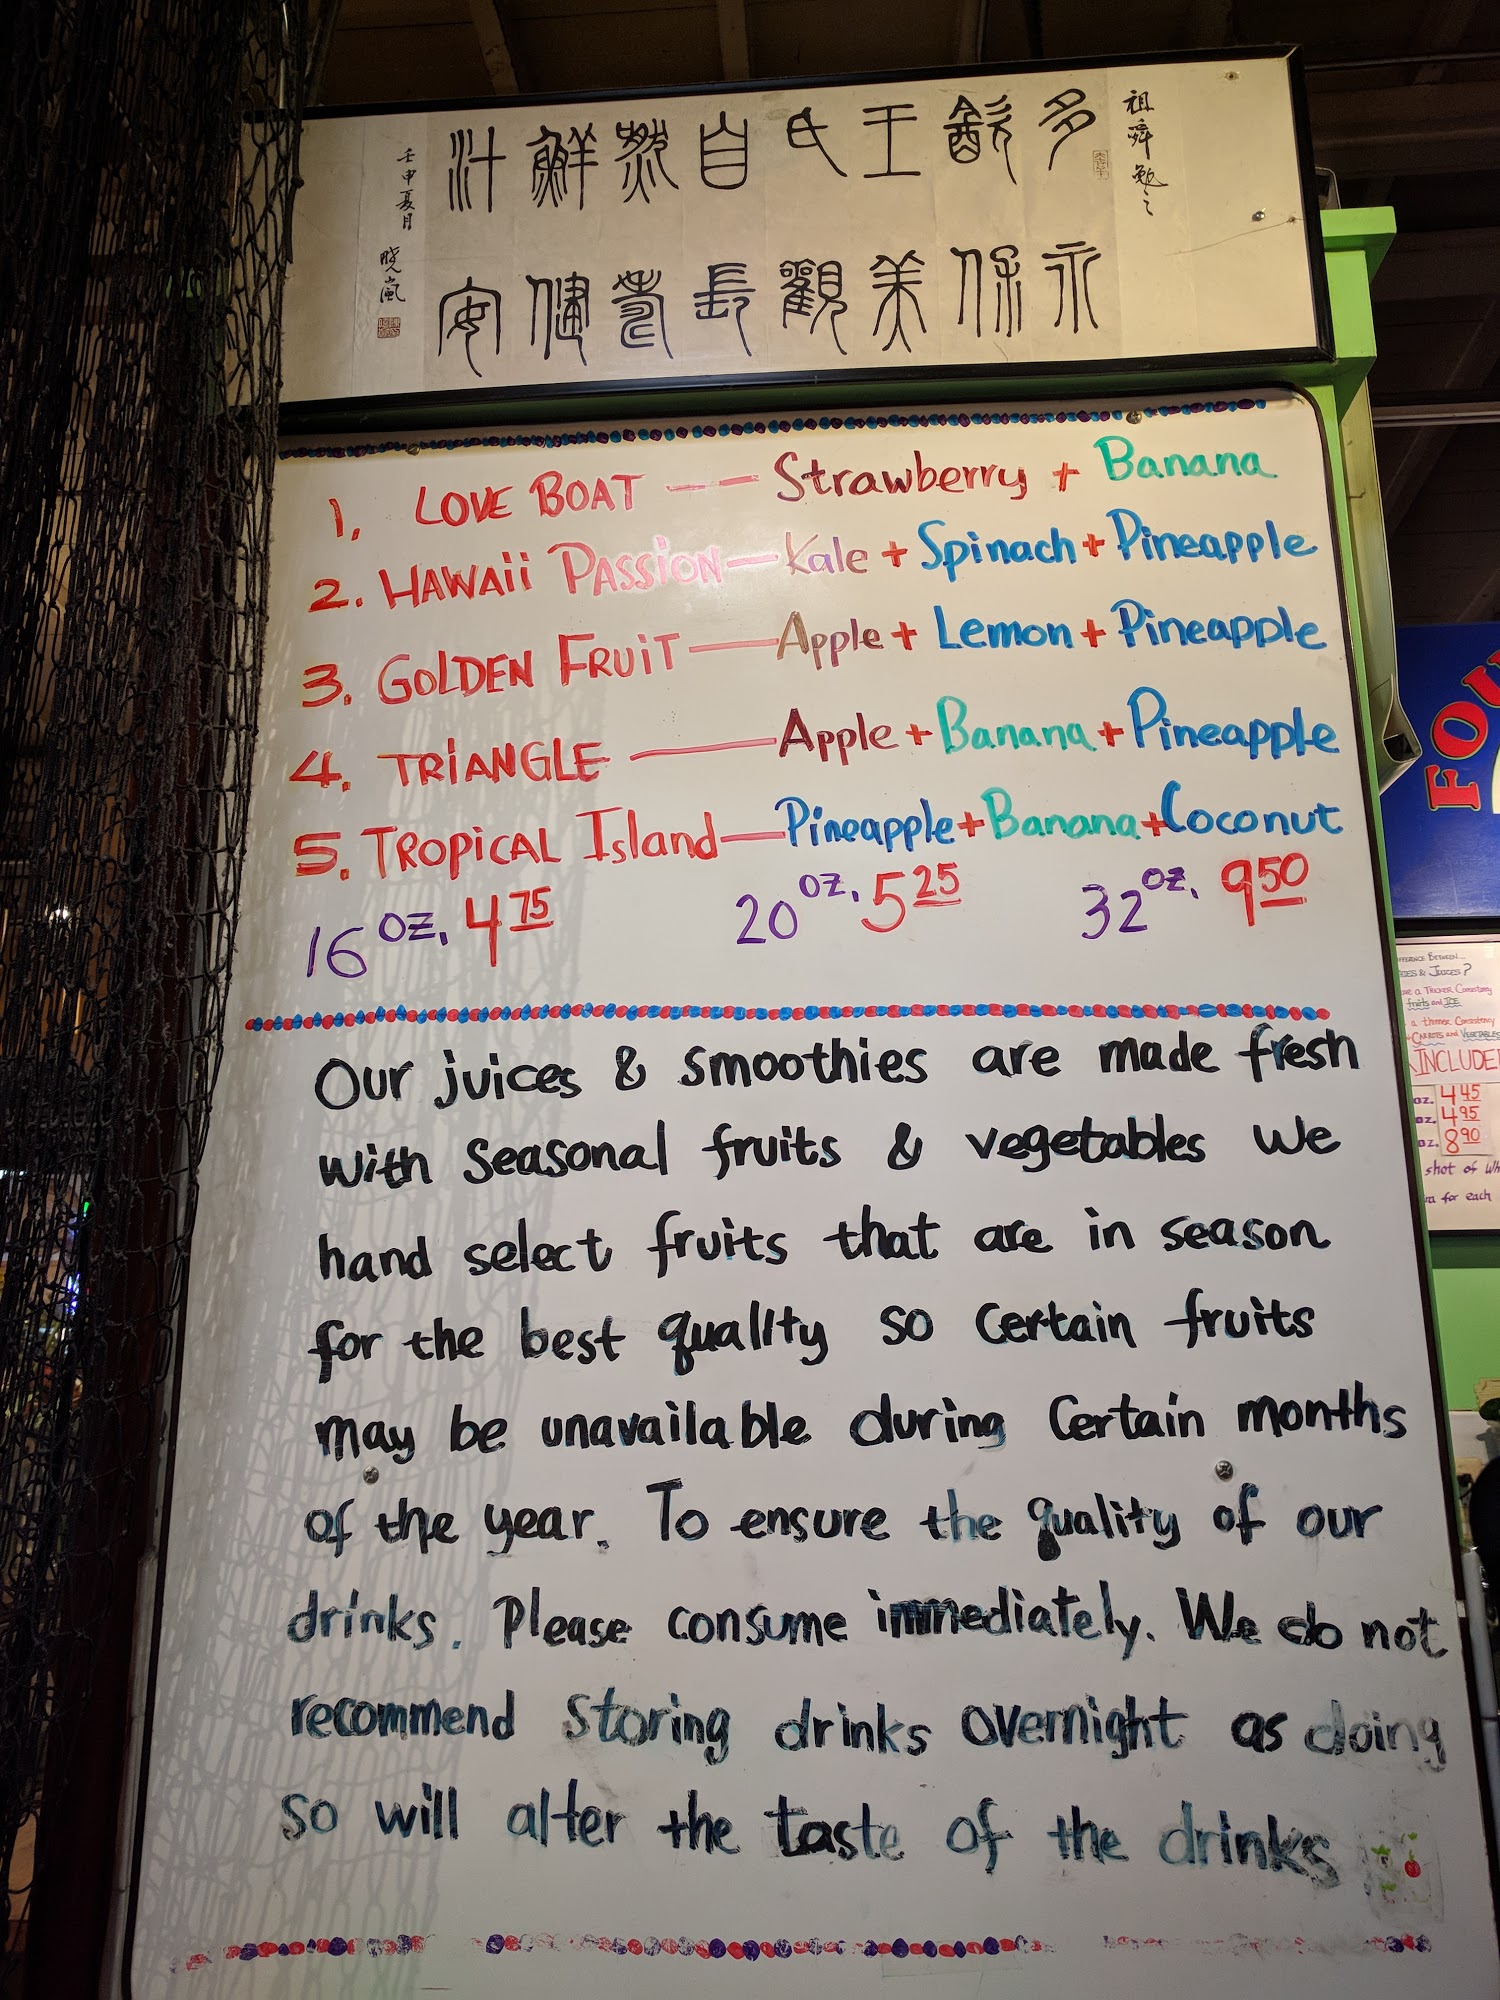 祖舜勉之
多飲王氏自然鮮汁
永保美觀長壽健安
壬申夏月
曉嵐
1. LOVE BOAT — — Strawberry + Banana
2. HAWAii PASSiON — Kale + Spinach + Pineapple
3. GOLDEN FRUiT — Apple + Lemon + Pineapple
4. TRiANGLE — Apple + Banana + Pineapple
5. TROPiCAL Island — Pineapple + Banana + Coconut
16 OZ. 4 75 20 OZ. 5 25 32 OZ. 9 50
Our juices & smoothies are made fresh
with seasonal fruits & vegetables we
hand select fruits that are in season
for the best quality so certain fruits
may be unavailable during certain months
of the year. To ensure the quality of our
drinks. Please consume immediately. We do not
recommend storing drinks overnight as doing
so will alter the taste of the drinks
FOU
FFERENCE BETWEEN...
IES & JUICES?
a THICKER Consistency
fruits and ICE
a thinner Consistency
CARROTS and VEGETABLES
INCLUDE
oz. 4 45
oz. 4 95
oz. 8 90
shot of Wh
ra for each